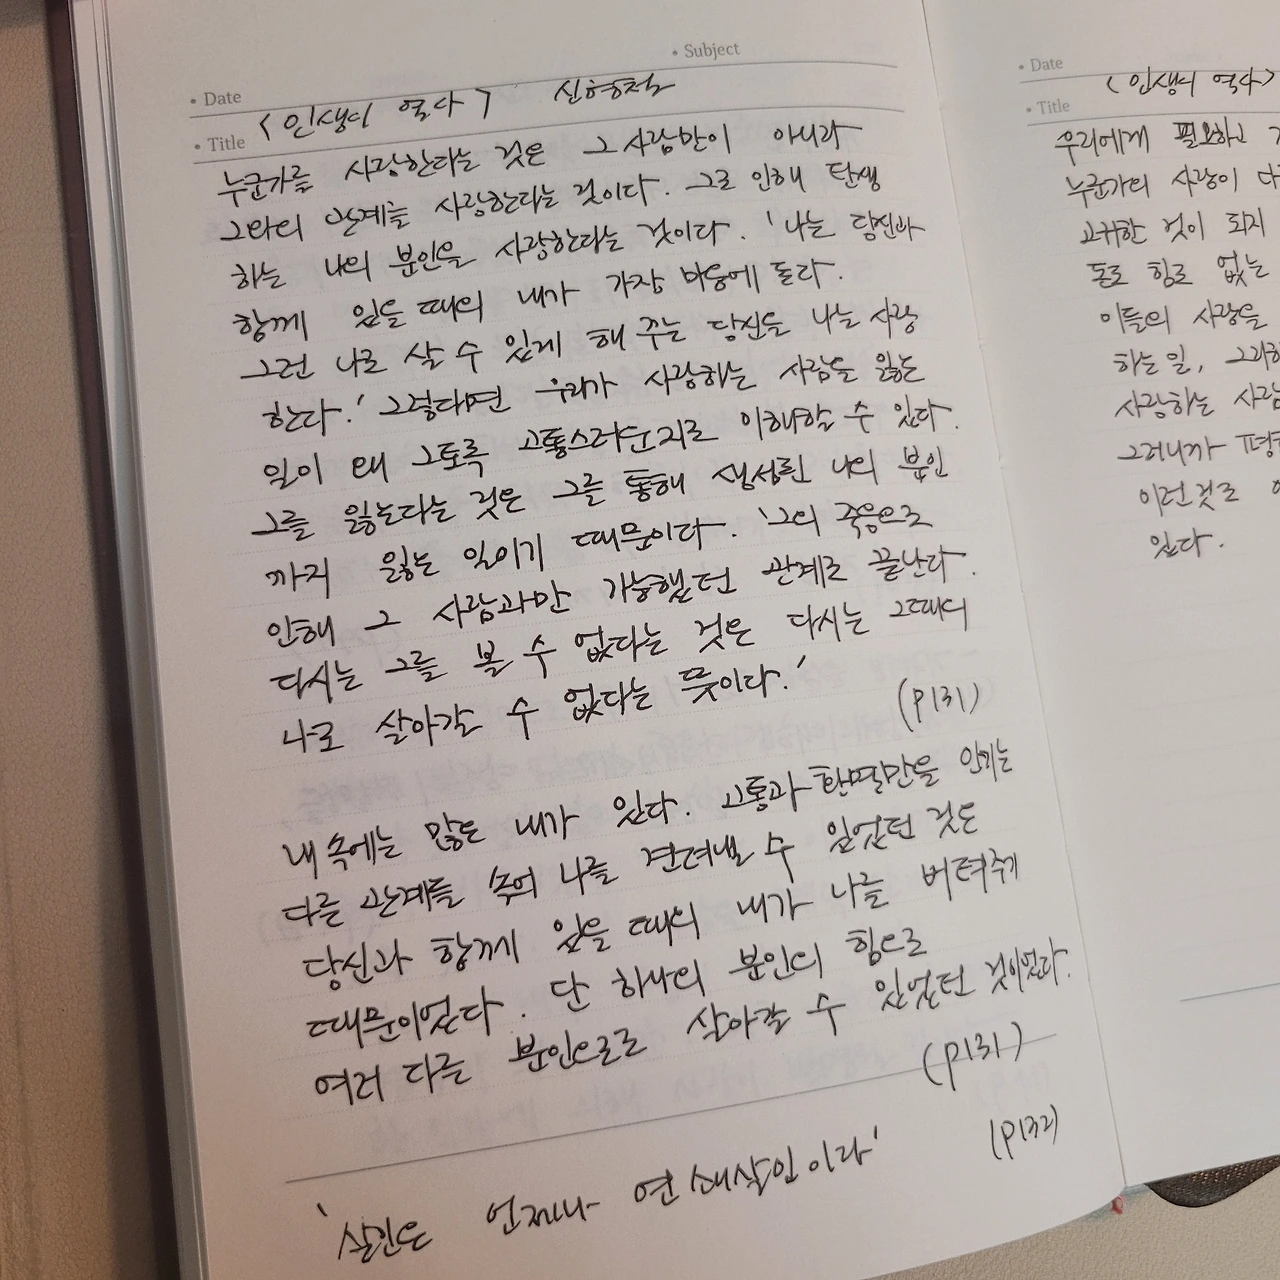 • Subject
• Date
• Title
<인생의 역사> 신형철
누군가를 사랑한다는 것은 그 사람만이 아니라
그와의 관계를 사랑한다는 것이다. 그로 인해 탄생
하는 나의 분인을 사랑한다는 것이다. '나는 당신과
함께 있을 때의 내가 가장 마음에 들다.
그런 나로 살 수 있게 해 주는 당신을 나는 사랑
한다.' 그렇다면 우리가 사랑하는 사람을 잃는
일이 왜 그토록 고통스러운지도 이해할 수 있다.
그를 잃는다는 것은 그를 통해 생성된 나의 분인
까지 잃는 일이기 때문이다. '그의 죽음으로
인해 그 사람과만 가능했던 관계도 끝난다.
다시는 그를 볼 수 없다는 것은 다시는 그때의
나로 살아갈 수 없다는 뜻이다.'
(P131)
내 속에는 많은 내가 있다. 고통과 환멸만을 안기는
다른 관계들 속의 나를 견뎌낼 수 있었던 것은
당신과 함께 있을 때의 내가 나를 버텨줘
때문이었다. 단 하나의 분인의 힘으로
여러 다른 분인으로도 살아갈 수 있었던 것이었다.
(P131)
(P132)
'살인은 언제나 연쇄살인이라'
• Date
• Title
<인생의 역사>
우리에게 필요하고
누군가의 사랑이
고귀한 것이 되지
돈도 힘도 없는
이들의 사랑을
하는 일, 그러한
사랑하는
그러니까
이런것도
있다.